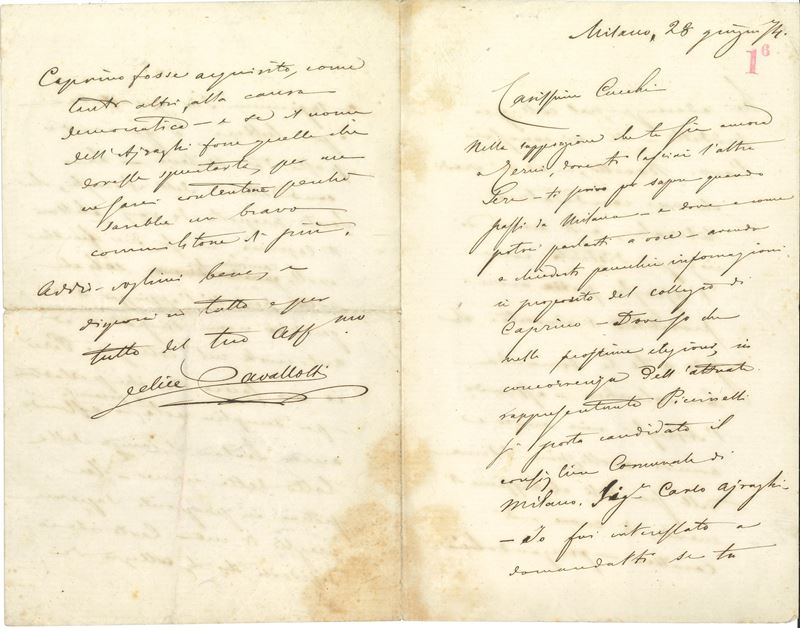 Milano, 28 giugno 74.
16
Carissimo Cucchi
Nella supposizione che tu sia ancora
a Zerni, dove ti lasciai l'altra
sera – ti scrivo per sapere quando
passi da Milano – e dove e come
potrei parlarti a voce – avendo
a chiederti parecchie informazioni
in proposito del collegio di
Caprino – Dove so che
nelle prossime elezioni, in
concorrenza dell'attuale
rappresentante Piccinelli
si porta candidato il
consigliere Comunale di
Milano. Sigr Carlo Ajraghi
– Io fui interessato a
domandarti se tu
Caprino fosse acquisito, come
tanti altri, alla causa
democratica – e se il nome
dell'Ajraghi fosse quello che
dovesse spuntarla, per me
ne sarei contentone perchè
sarebbe un bravo
commilitone di più.
Addio – voglimi bene, e
disponi in tutto e per
tutto del tuo Aff mo
Felice Cavallotti